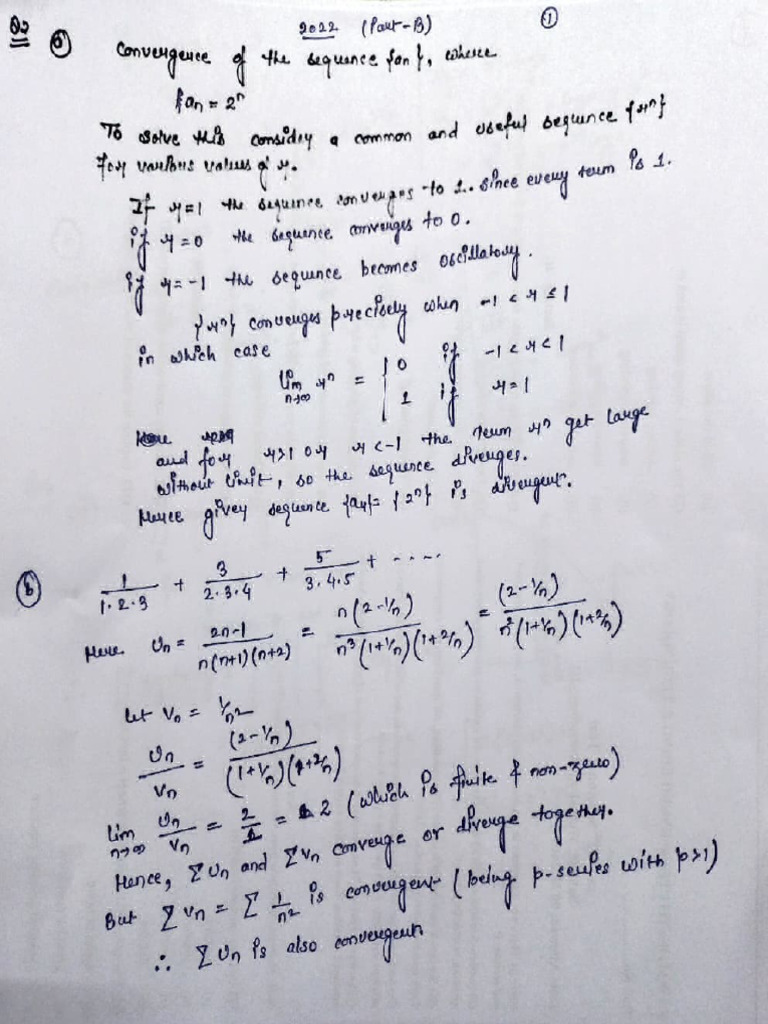 2022 (Part-B) ①
Q2 ⓐ Convergence of the sequence {an}, where
{an = 2ⁿ
To solve this consider a common and useful sequence {rⁿ}
for various values of r.
If r=1 the sequence converges to 1. since every term is 1.
if r=0 the sequence converges to 0.
if r=-1 the sequence becomes oscillatory.
{rⁿ} converges precisely when -1 < r ≤ 1
in which case
lim n→∞ rⁿ = { 0 if -1 < r < 1
1 if r=1
and for r>1 or r<-1 the term rⁿ get large
without limit, so the sequence diverges.
Hence given sequence {an}= {2ⁿ} is divergent.
ⓑ 1/1.2.3 + 3/2.3.4 + 5/3.4.5 + .....
Here Un = 2n-1/n(n+1)(n+2) = n(2-1/n)/n³(1+1/n)(1+2/n) = (2-1/n)/n²(1+1/n)(1+2/n)
let Vn = 1/n²
Un/Vn = (2-1/n)/(1+1/n)(1+2/n)
lim n→∞ Un/Vn = 2/1 = 2 (which is finite & non-zero)
Hence, ΣUn and ΣVn converge or diverge together.
But ΣVn = Σ 1/n² is convergent (being p-series with p>1)
∴ ΣUn is also convergent